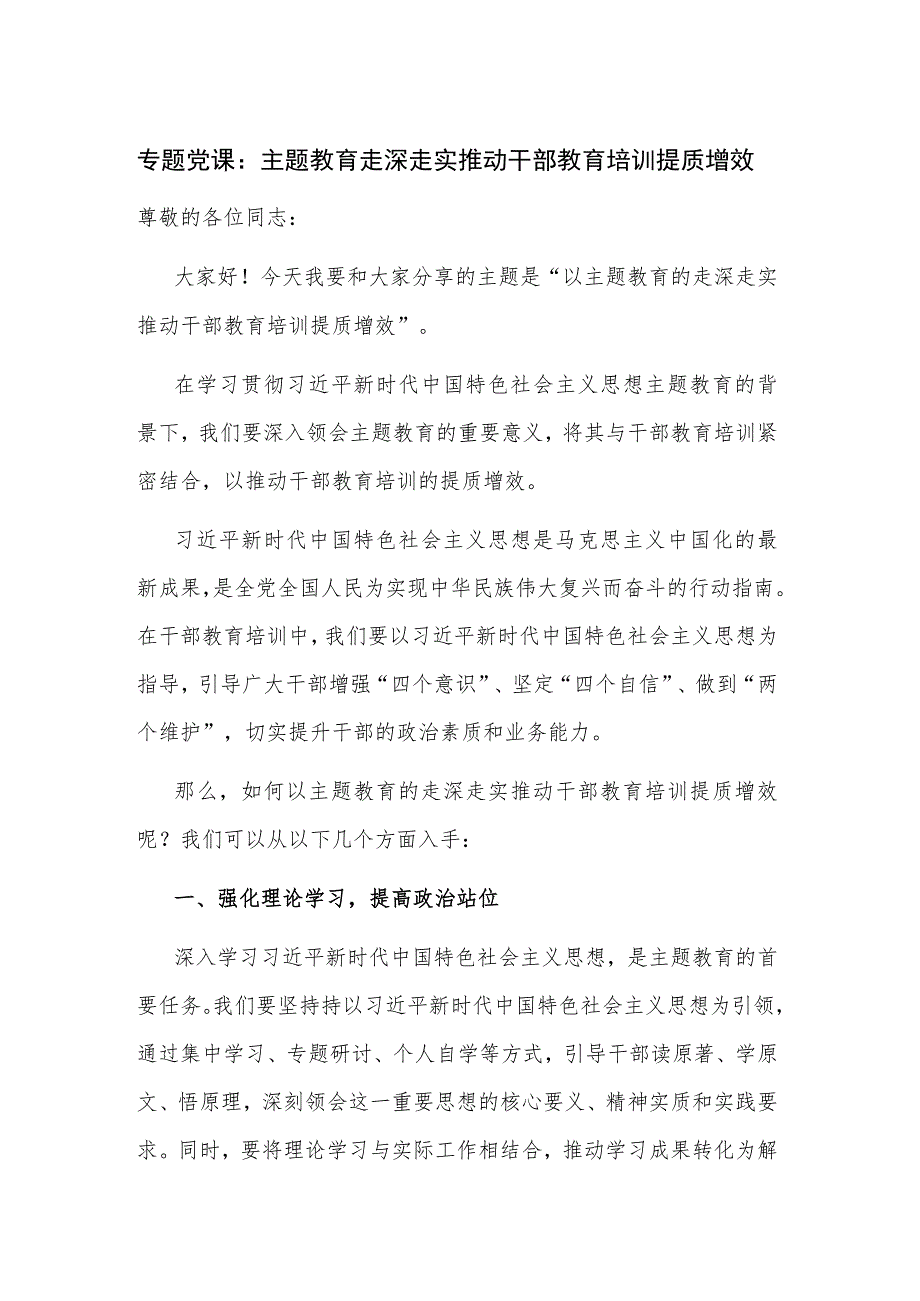 专题党课：主题教育走深走实推动干部教育培训提质增效
尊敬的各位同志：
大家好！今天我要和大家分享的主题是“以主题教育的走深走实
推动干部教育培训提质增效”。
在学习贯彻习近平新时代中国特色社会主义思想主题教育的背
景下，我们要深入领会主题教育的重要意义，将其与干部教育培训紧
密结合，以推动干部教育培训的提质增效。
习近平新时代中国特色社会主义思想是马克思主义中国化的最
新成果，是全党全国人民为实现中华民族伟大复兴而奋斗的行动指南。
在干部教育培训中，我们要以习近平新时代中国特色社会主义思想为
指导，引导广大干部增强“四个意识”、坚定“四个自信”、做到“两
个维护”，切实提升干部的政治素质和业务能力。
那么，如何以主题教育的走深走实推动干部教育培训提质增效
呢？我们可以从以下几个方面入手：
一、强化理论学习，提高政治站位
深入学习习近平新时代中国特色社会主义思想，是主题教育的首
要任务。我们要坚持持以习近平新时代中国特色社会主义思想为引领，
通过集中学习、专题研讨、个人自学等方式，引导干部读原著、学原
文、悟原理，深刻领会这一重要思想的核心要义、精神实质和实践要
求。同时，要将理论学习与实际工作相结合，推动学习成果转化为解